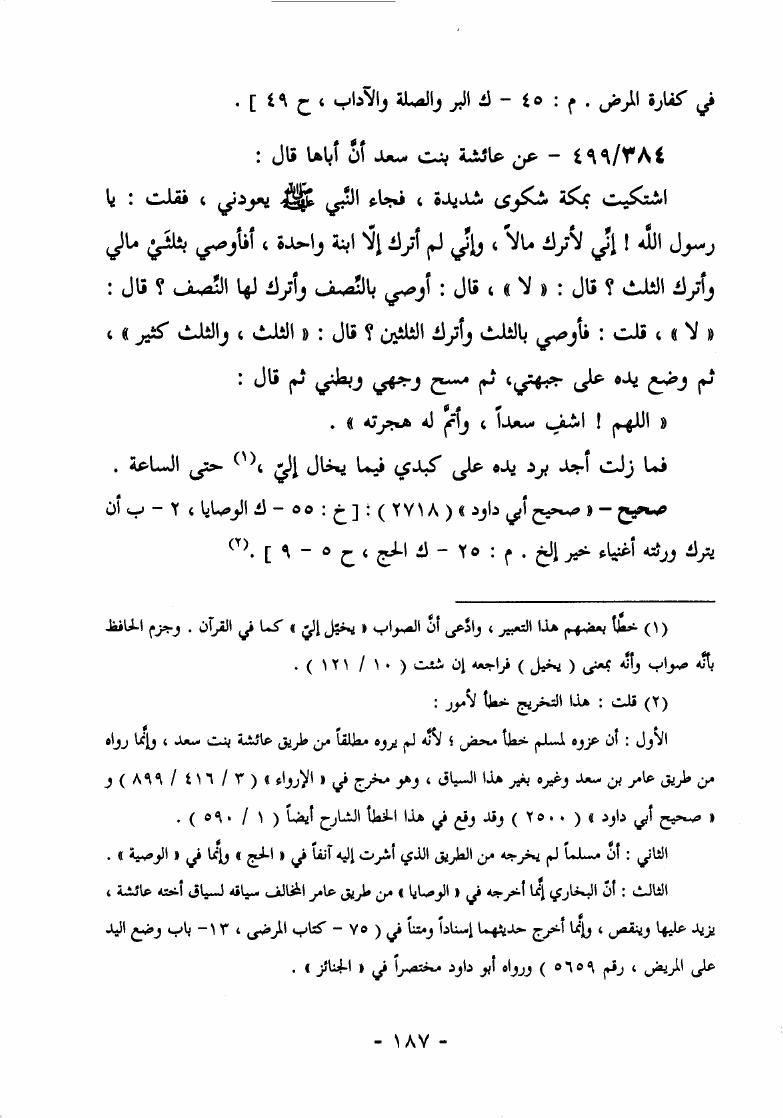 في كفارة المرض . م : ٤٥ – ك البر والصلة والآداب ، ح ٤٩ ] .
٤٩٩/٣٨٤ – عن عائشة بنت سعد أنَّ أباها قال :
اشتكيت بمكة شكوى شديدة ، فجاء النَّبي ﷺ يعودني ، فقلت : يا
رسول اللَّه ! إنِّي لأترك مالاً ، وإنِّي لم أترك إلّا ابنة واحدة ، أفأوصي بثلثَيْ مالي
وأترك الثلث ؟ قال : « لا » ، قال : أوصي بالنِّصف وأترك لها النِّصف ؟ قال :
« لا » ، قلت : فأوصي بالثلث وأترك الثلثين ؟ قال : « الثلث ، والثلث كثير » ،
ثم وضع يده على جبهتي، ثم مسح وجهي وبطني ثم قال :
« اللهم ! اشفِ سعداً ، وأتمَّ له هجرته » .
فما زلت أجد برد يده على كبدي فيما يخال إليّ ،(١) حتى الساعة .
صحيح – « صحيح أبي داود » ( ٢٧١٨ ) : [ خ : ٥٥ – ك الوصايا ، ٢ – ب أن
يترك ورثته أغنياء خير إلخ . م : ٢٥ – ك الحج ، ح ٥ – ٩ ] .(٢)
(١) خطَّأ بعضهم هذا التعبير ، وادَّعى أنَّ الصواب « يخيَّل إليّ » كما في القرآن . وجزم الحافظ
بأنَّه صواب وأنَّه بمعنى ( يخيل ) فراجعه إن شئت ( ١٠ / ١٢١ ) .
(٢) قلت : هذا التخريج خطأ لأمور :
الأول : أن عزوه لمسلم خطأ محض ؛ لأنَّه لم يروه مطلقاً من طريق عائشة بنت سعد ، وإنَّما رواه
من طريق عامر بن سعد وغيره بغير هذا السياق ، وهو مخرج في « الإرواء » ( ٣ / ٤١٦ / ٨٩٩ ) و
« صحيح أبي داود » ( ٢٥٠٠ ) وقد وقع في هذا الخطأ الشارح أيضاً ( ١ / ٥٩٠ ) .
الثاني : أنَّ مسلماً لم يخرجه من الطريق الذي أشرت إليه آنفاً في « الحج » وإنَّما في « الوصية » .
الثالث : أنّ البخاري إنَّما أخرجه في « الوصايا » من طريق عامر المخالف سياقه لسياق أخته عائشة ،
يزيد عليها وينقص ، وإنَّما أخرج حديثهما إسناداً ومتناً في ( ٧٥ – كتاب المرضى ، ١٣– باب وضع اليد
على المريض ، رقم ٥٦٥٩ ) ورواه أبو داود مختصراً في « الجنائز » .
- ١٨٧ -